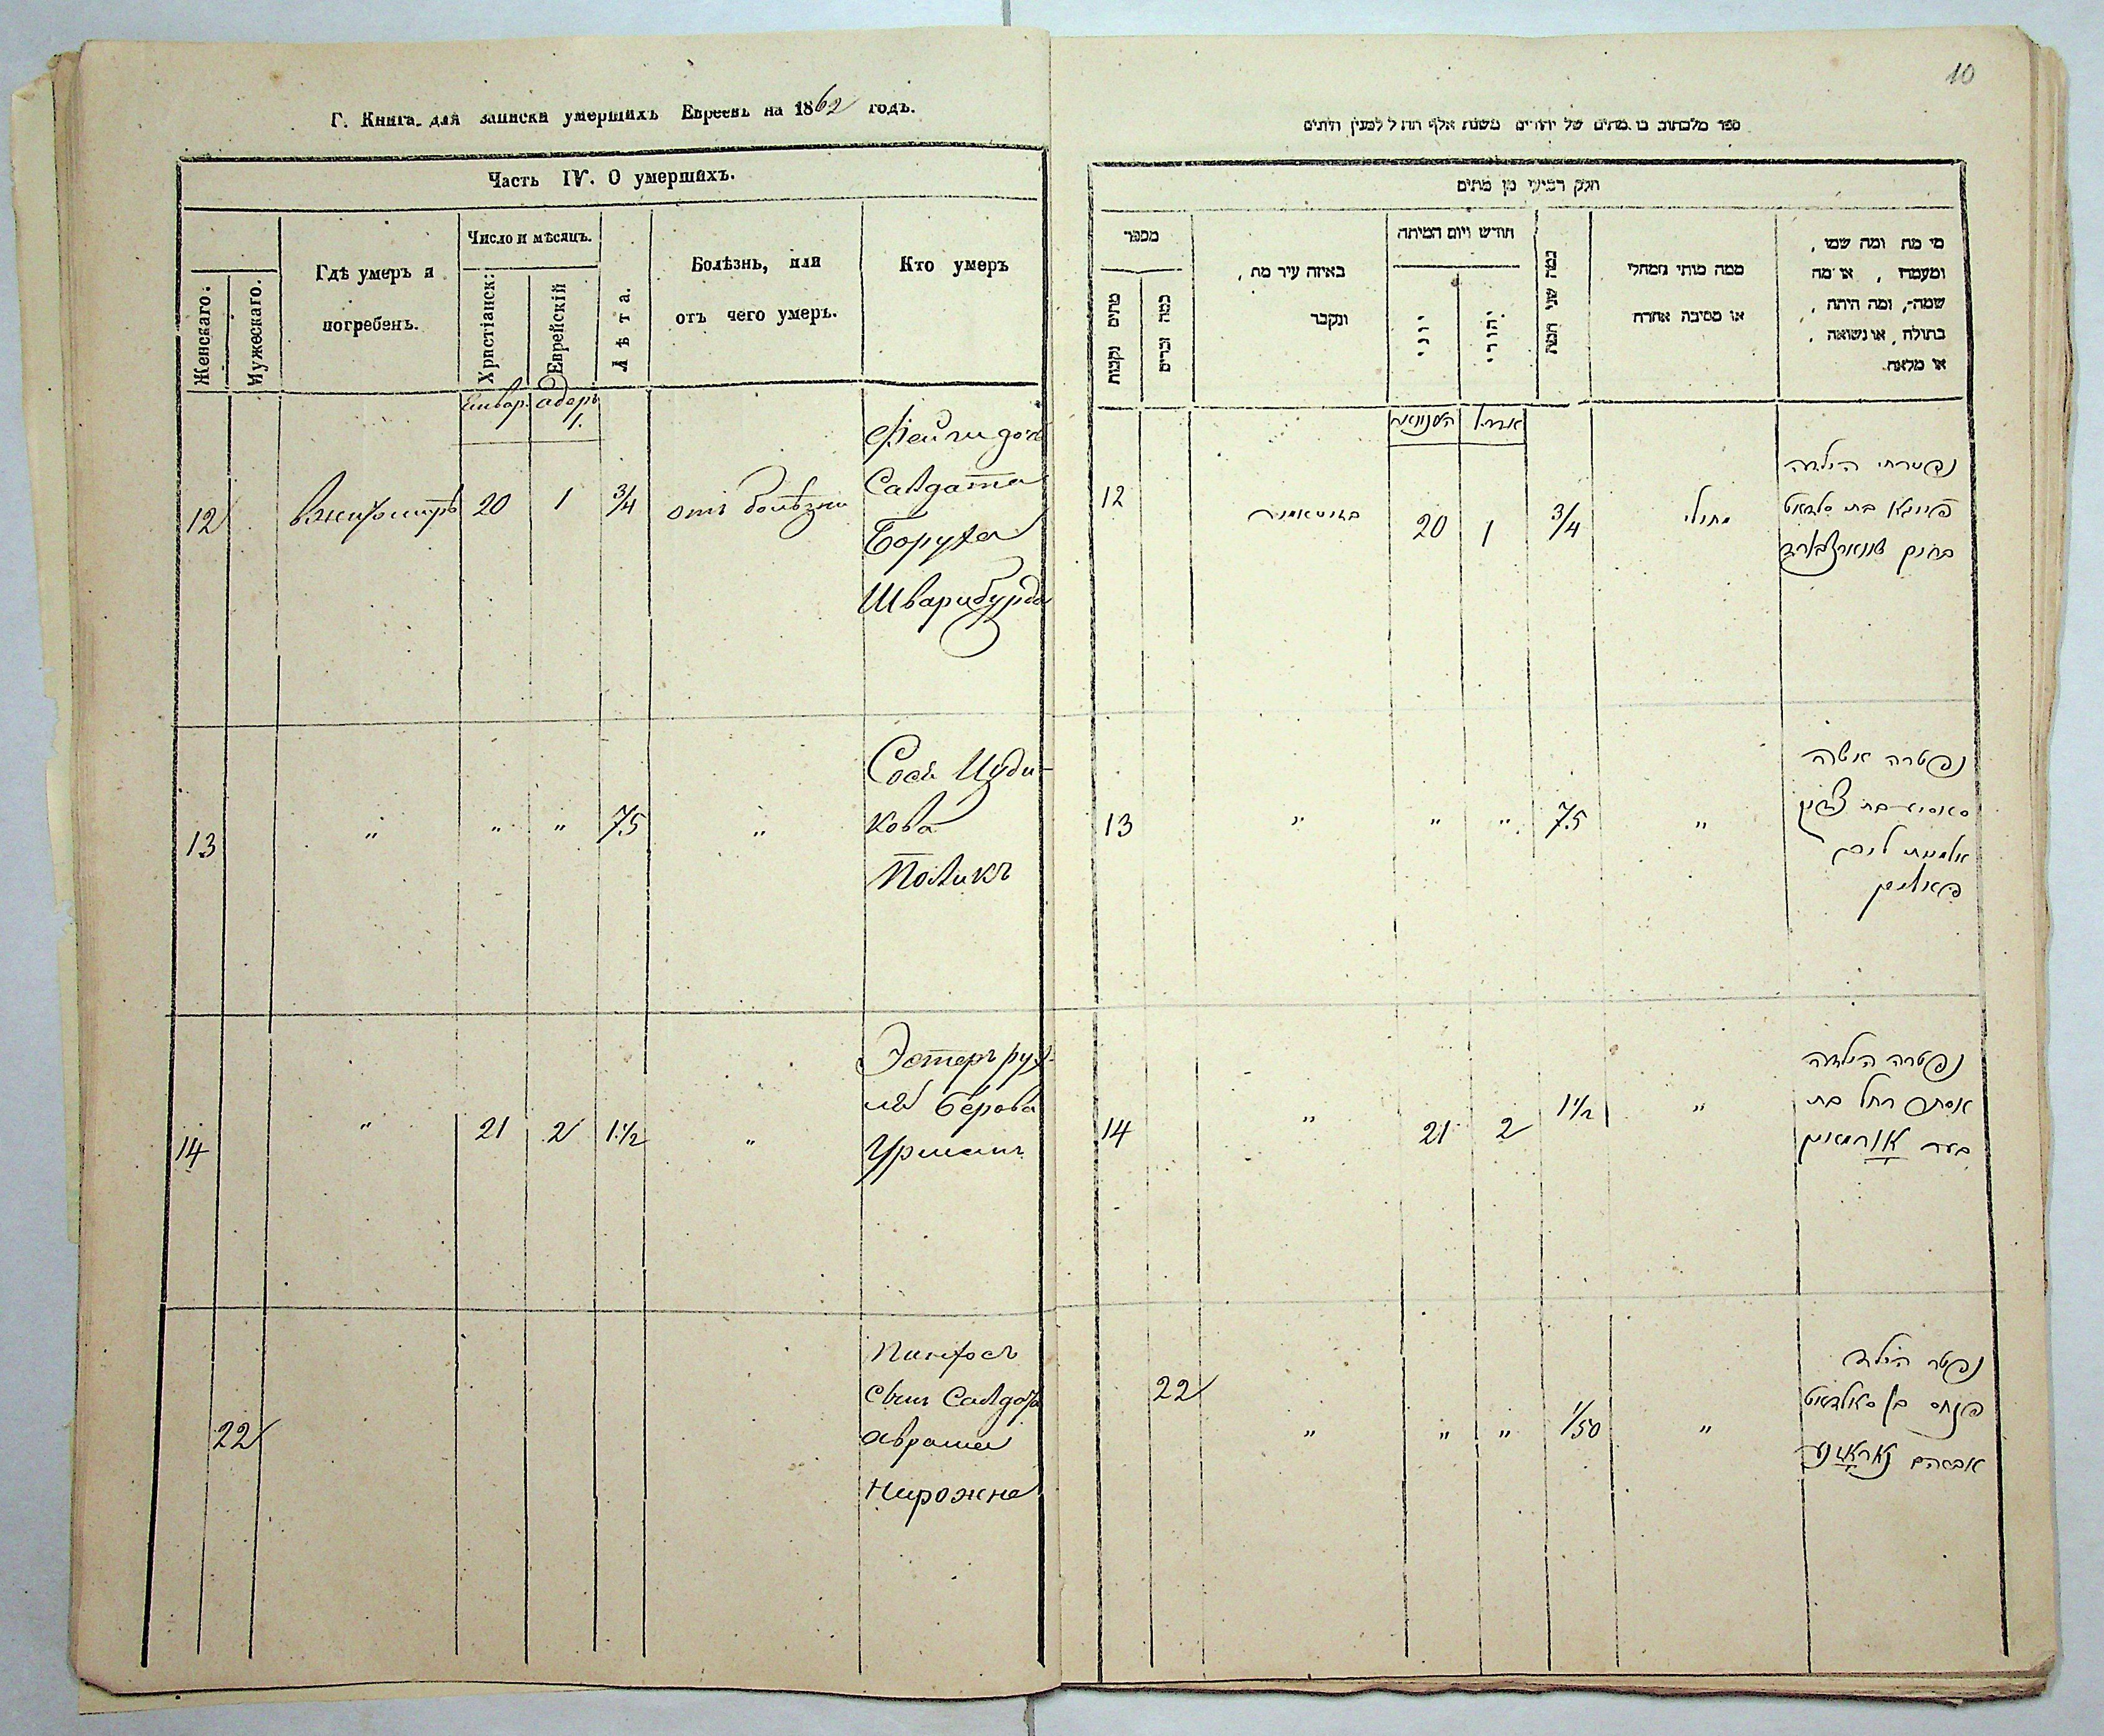 Г. Книга для записки умершихъ Евреевъ на 1862 годъ.
Часть IV. О умершихъ.
Женскаго.
Мужескаго.
Гдѣ умеръ и
погребенъ.
Число и мѣсяцъ.
Христіанск:
Еврейскій
Лѣта.
Болѣзнь, или
отъ чего умеръ.
Кто умеръ
адеръ
1.
12
вжитомирѣ
20
1
3/4
отъ болѣзни
Салдата
Боруха
13
"
"
"
75
"
Кова
Поликъ
14
"
21
2
1 1/2
"
Эстеръ рух-
ля берова
Урманъ
22
Пинхосъ
сынъ Салдата
аврама
Нирожне
10
ספר מלכתוב בו מתים של יהודים משנת אלף תתל למנין היונים
חלק רביעי מן מתים
מספר
מתים נקבות
כמה זכרים
באיזה עיר מת,
ונקבר
חודש ויום המיתה
יוני
יהודי
כמה שני חייו
ממה מותי ממחלי
או מסיבה אחרת
מי מת ומה שמו,
ומעמדו, או מה
שמה, ומה היתה,
בתולה, או נשואה,
או מלאה
12
20
1
3/4
מחולי
הילדה
פייגא בת סלדאט
13
"
"
"
75
"
נפטרה אשה
אלמנת ליב
פאליק
14
"
21
2
1 1/2
"
נפטרה הילדה
אסתר רחל בת
בער אורמאן
22
"
"
"
1/50
"
נפטר הילד
פנחס בן סאלדאט
אברהם